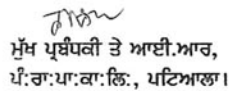 ਮੁੱਖ ਪ੍ਰਬੰਧਕੀ ਤੇ ਆਈ.ਆਰ,
ਪੰ:ਰਾ:ਪਾ:ਕਾ:ਲਿ:, ਪਟਿਆਲਾ।